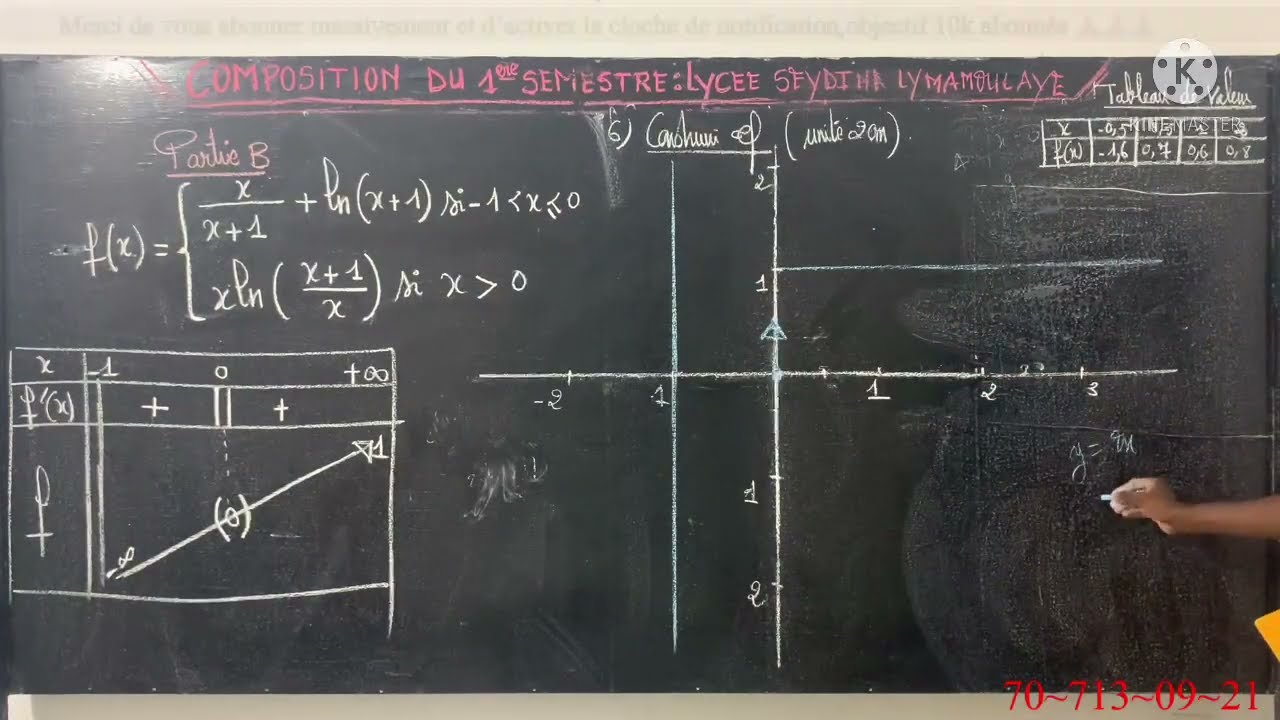 Merci de vous abonner massivement et d'activer la cloche de notification, objectif 10k abonnés
COMPOSITION DU 1ere SEMESTRE: LYCEE SEYDINA LYMAMOULAYE
K
KINEMASTER
Tableau de Valeur
x -0,5
f(x) -1,6 0,7 0,6 0,8
Partie B
f(x) = { x/(x+1) + ln(x+1) si -1 < x ⩽ 0
x ln((x+1)/x) si x > 0
x -1 0 +∞
f'(x) + || +
f -∞ (0) 1
6) Construire Cf (unité 2cm).
2
1
-2 1 1 2 3
1
2
y = 2x
70~713~09~21